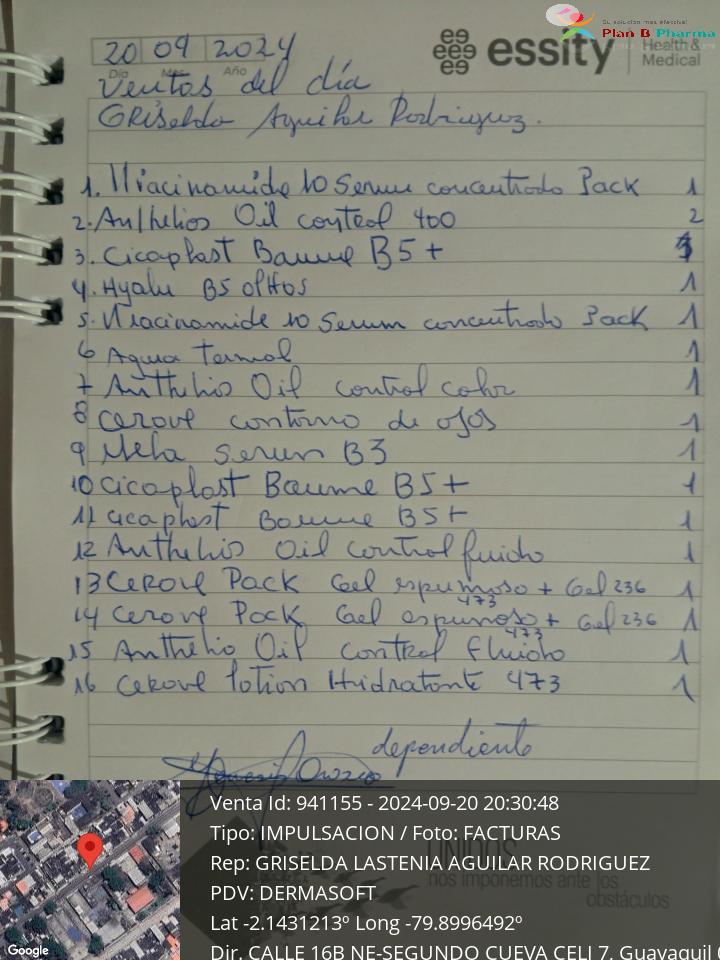 Su solución mas efectiva!
Plan B Pharma
essity Health & Medical
20 09 2024
Día Mes Año
Ventas del día
Griselda Aguilar Rodriguez.
1. Niacinamide 10 Serum concentrado Pack 1
2. Anthelios Oil control 400 2
3. Cicaplast Baume B5+
4. Hyalu B5 olHos 1
5. Niacinamide 10 Serum concentrado Pack 1
6 Agua Termal 1
7 Anthelio Oil control color 1
8 Cerave contorno de ojos 1
9 Mela Serum B3 1
10 Cicaplast Baume B5+ 1
11 Cicaplast Baume B5+ 1
12 Anthelio Oil control fluido 1
13 CERAVE Pack Gel espumoso 473 + Gel 236 1
14 Cerave Pack Gel espumoso 473 + Gel 236 1
15 Anthelio Oil control Fluido 1
16 CERAVE lotion Hidratante 473 1
dependiente
Orozco
UNIDOS
nos imponemos ante los
obstáculos
Venta Id: 941155 - 2024-09-20 20:30:48
Tipo: IMPULSACION / Foto: FACTURAS
Rep: GRISELDA LASTENIA AGUILAR RODRIGUEZ
PDV: DERMASOFT
Lat -2.1431213º Long -79.8996492º
Dir. CALLE 16B NE-SEGUNDO CUEVA CELI 7, Guayaquil
Google